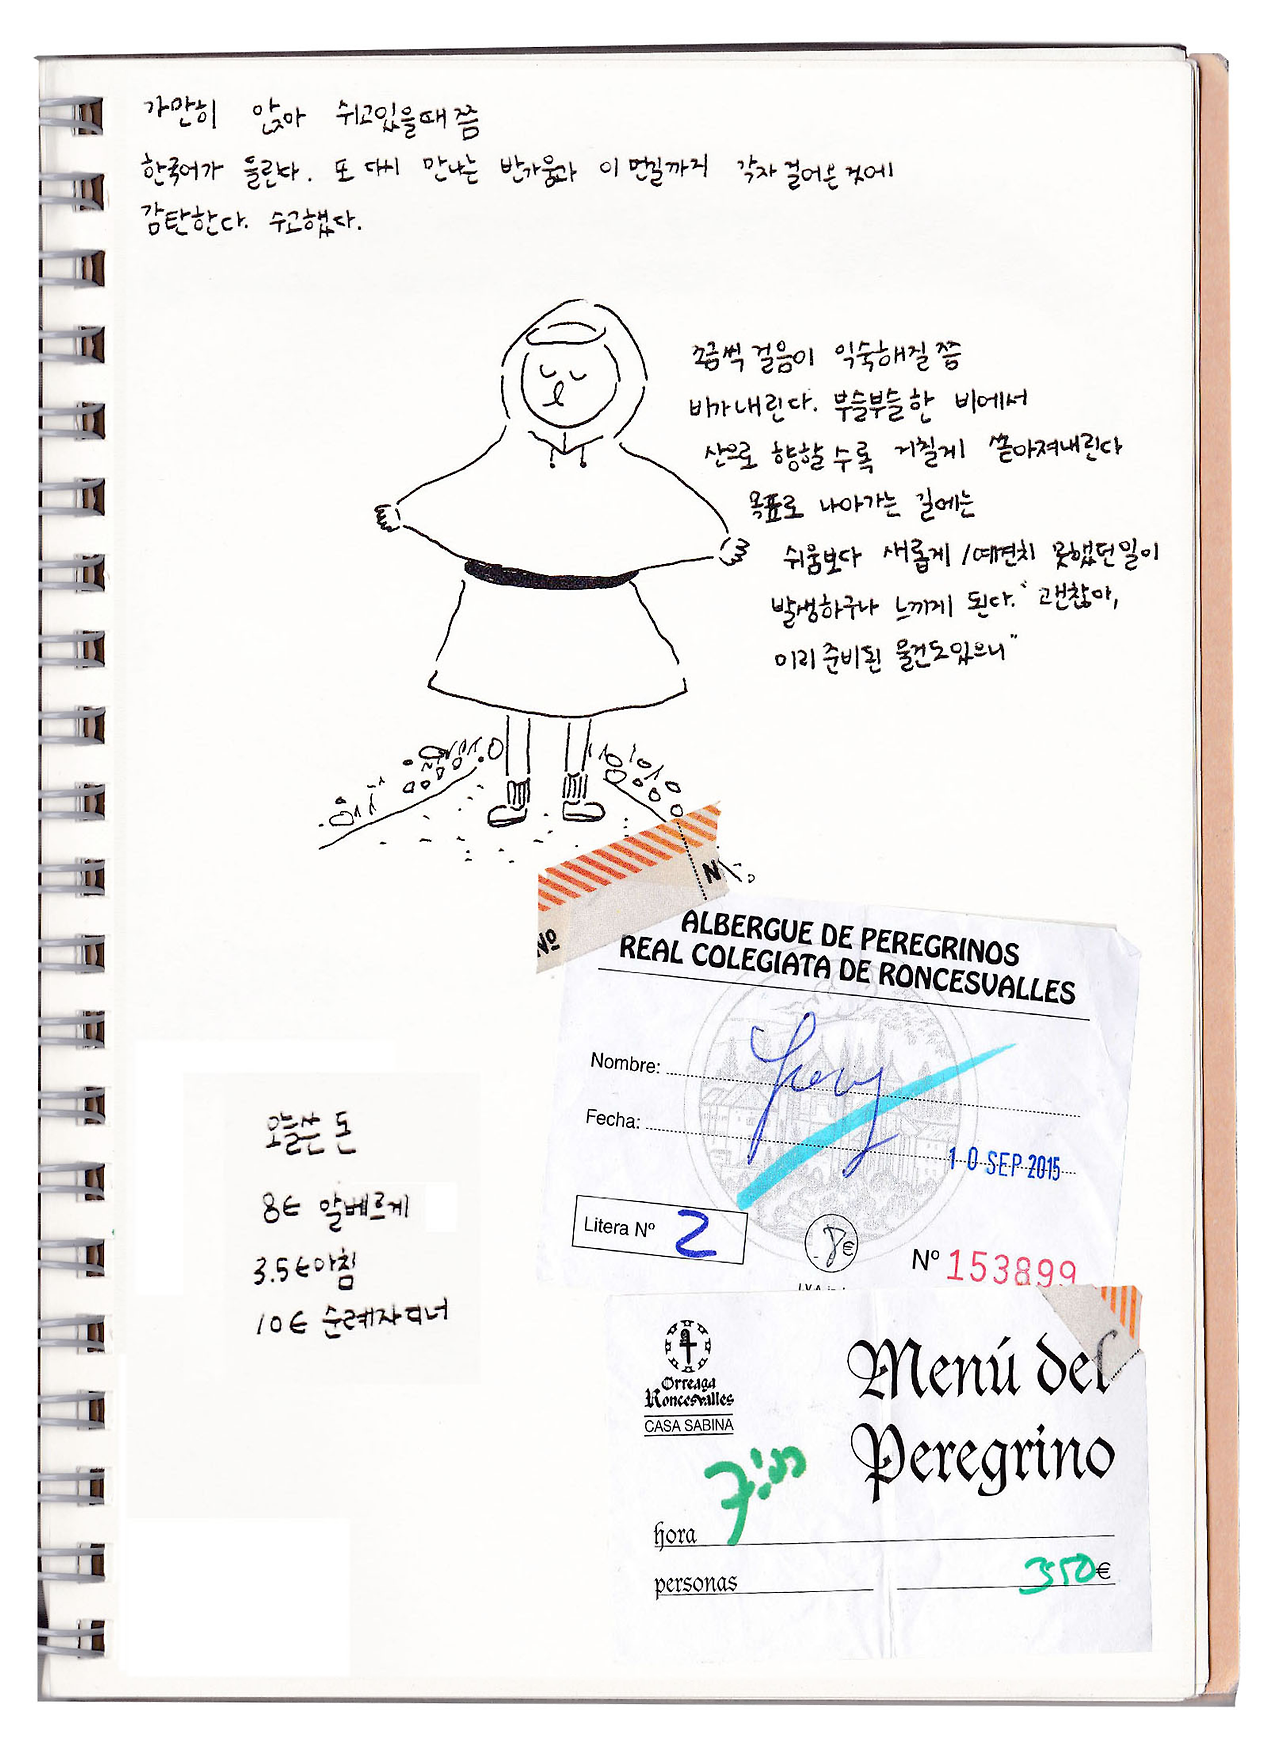 가만히 앉아 쉬고있을때쯤
한국어가 들린다. 또 다시 만나는 반가움과 이 먼길까지 각자 걸어온 것에
감탄한다. 수고했다.
조금씩 걸음이 익숙해질 쯤
비가 내린다. 부슬부슬한 비에서
산으로 향할수록 거칠게 쏟아져내린다
목표로 나아가는 길에는
쉬움보다 새롭게/예견치 못했던일이
발생하구나 느끼게 된다. "괜찮아,
미리 준비된 물건도있으니"
Nº
N
ALBERGUE DE PEREGRINOS
REAL COLEGIATA DE RONCESVALLES
Nombre:
Fecha:
10 SEP 2015
Litera Nº 2
8€
Nº 153899
오늘쓴 돈
8€ 알베르게
3.5€ 아침
10€ 순례자디너
Orreaga
Roncesvalles
CASA SABINA
Menú del
Peregrino
hora
personas 350€